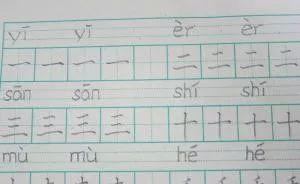 yī yī èr èr
一 一 一 一 二 二 二 二
sān sān shí shí
三 三 三 三 十 十 十 十
mù mù hé hé